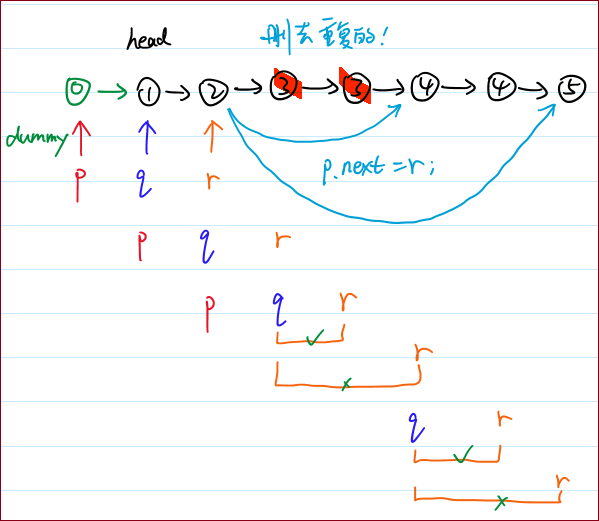 head 删去重复的!
0 1 2 3 3 4 4 5
dummy
p q r p.next=r;
p q r
p q r
r
q r
r